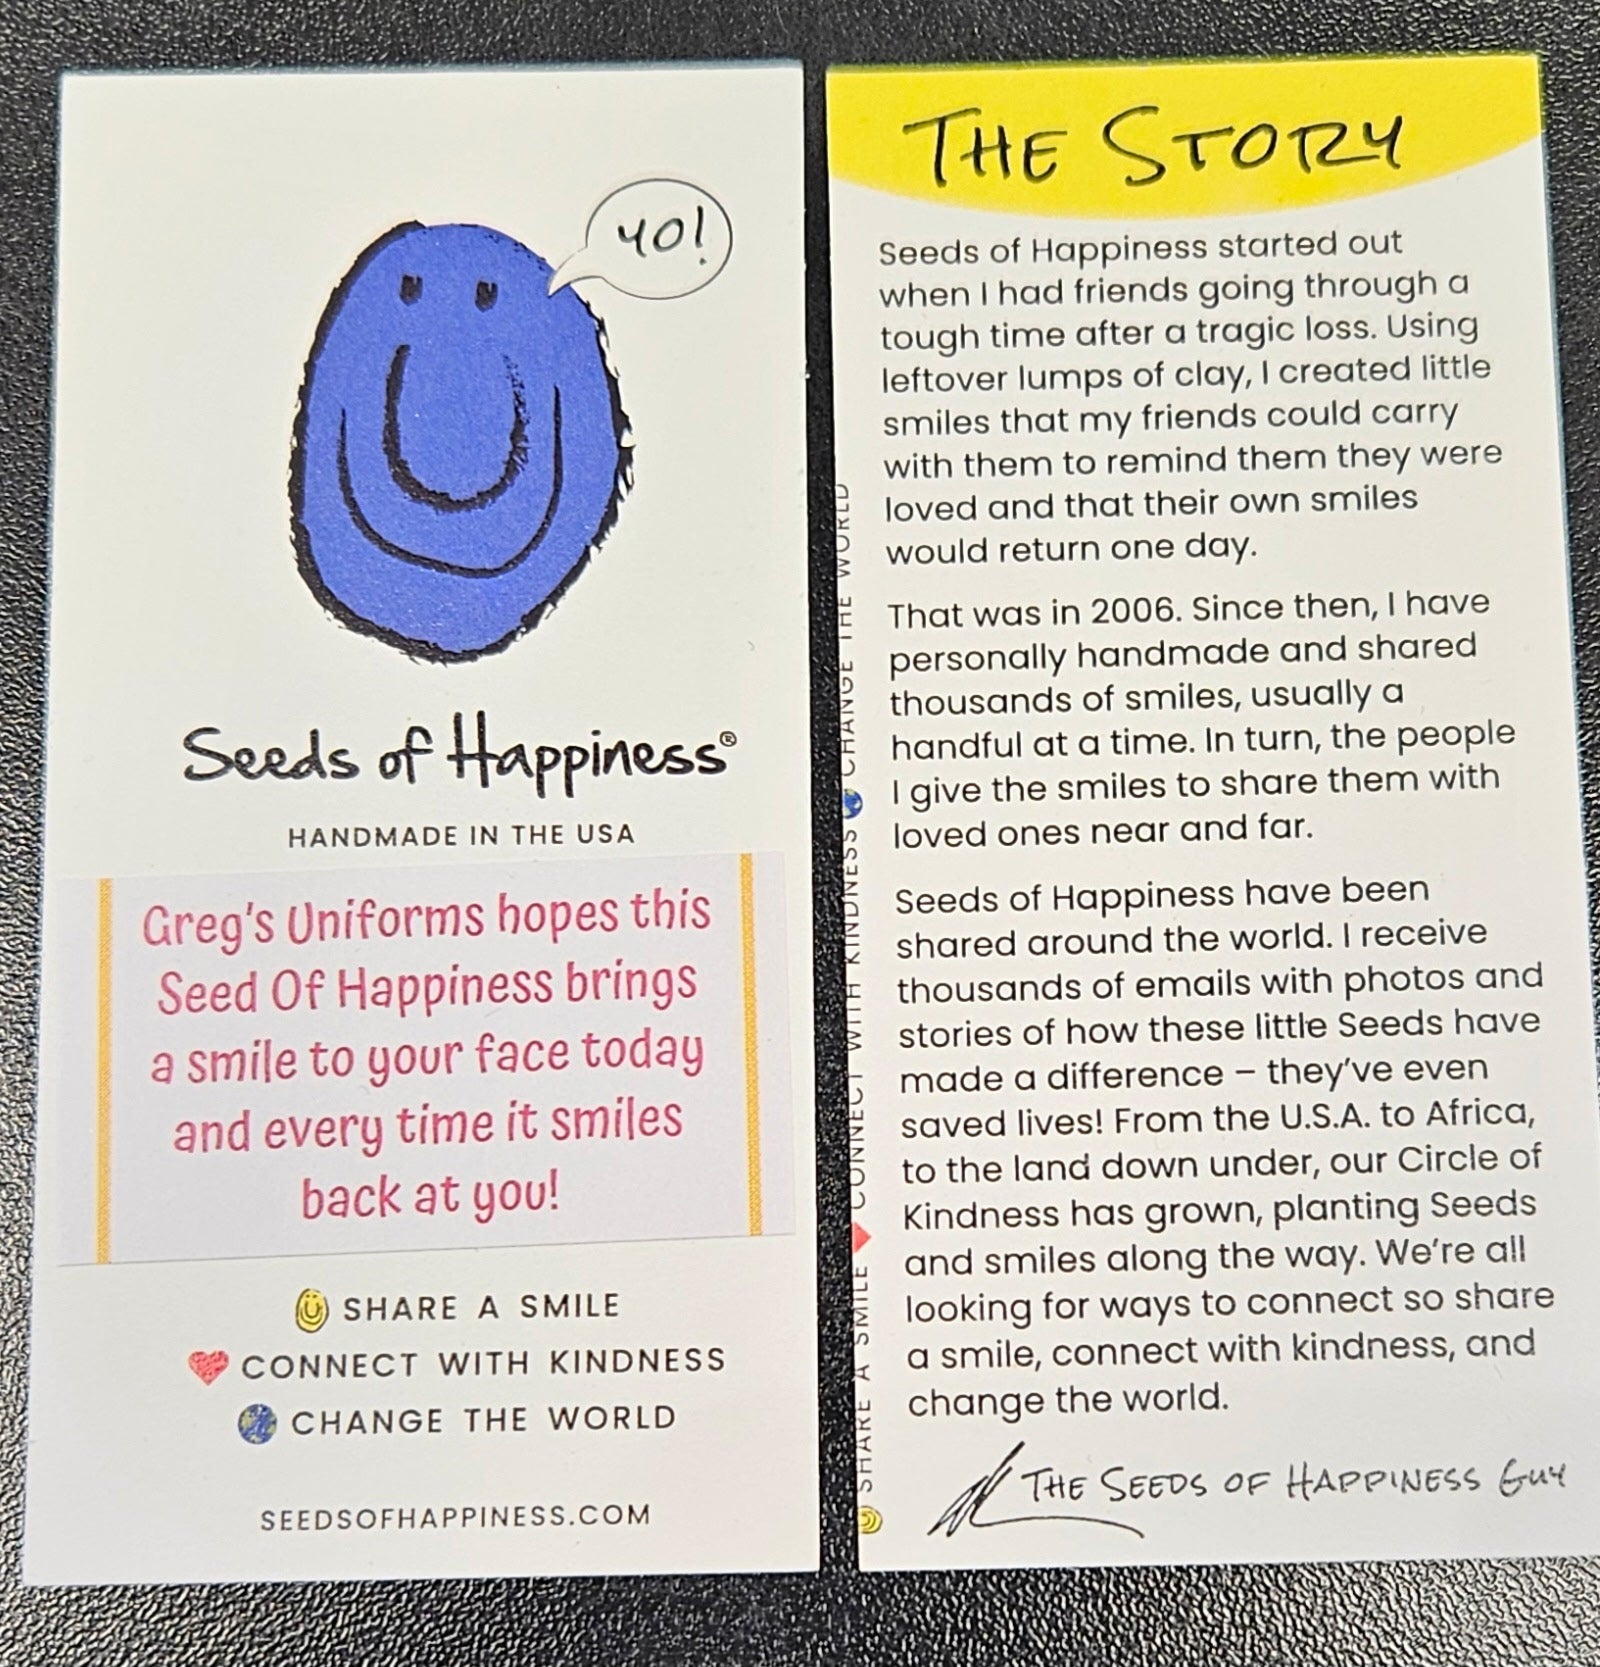 YO!
Seeds of Happiness®
HANDMADE IN THE USA
Greg's Uniforms hopes this
Seed Of Happiness brings
a smile to your face today
and every time it smiles
back at you!
SHARE A SMILE
CONNECT WITH KINDNESS
CHANGE THE WORLD
SEEDSOFHAPPINESS.COM
THE STORY
Seeds of Happiness started out
when I had friends going through a
tough time after a tragic loss. Using
leftover lumps of clay, I created little
smiles that my friends could carry
with them to remind them they were
loved and that their own smiles
would return one day.
That was in 2006. Since then, I have
personally handmade and shared
thousands of smiles, usually a
handful at a time. In turn, the people
I give the smiles to share them with
loved ones near and far.
Seeds of Happiness have been
shared around the world. I receive
thousands of emails with photos and
stories of how these little Seeds have
made a difference – they've even
saved lives! From the U.S.A. to Africa,
to the land down under, our Circle of
Kindness has grown, planting Seeds
and smiles along the way. We're all
looking for ways to connect so share
a smile, connect with kindness, and
change the world.
THE SEEDS OF HAPPINESS GUY
SHARE A SMILE CONNECT WITH KINDNESS CHANGE THE WORLD